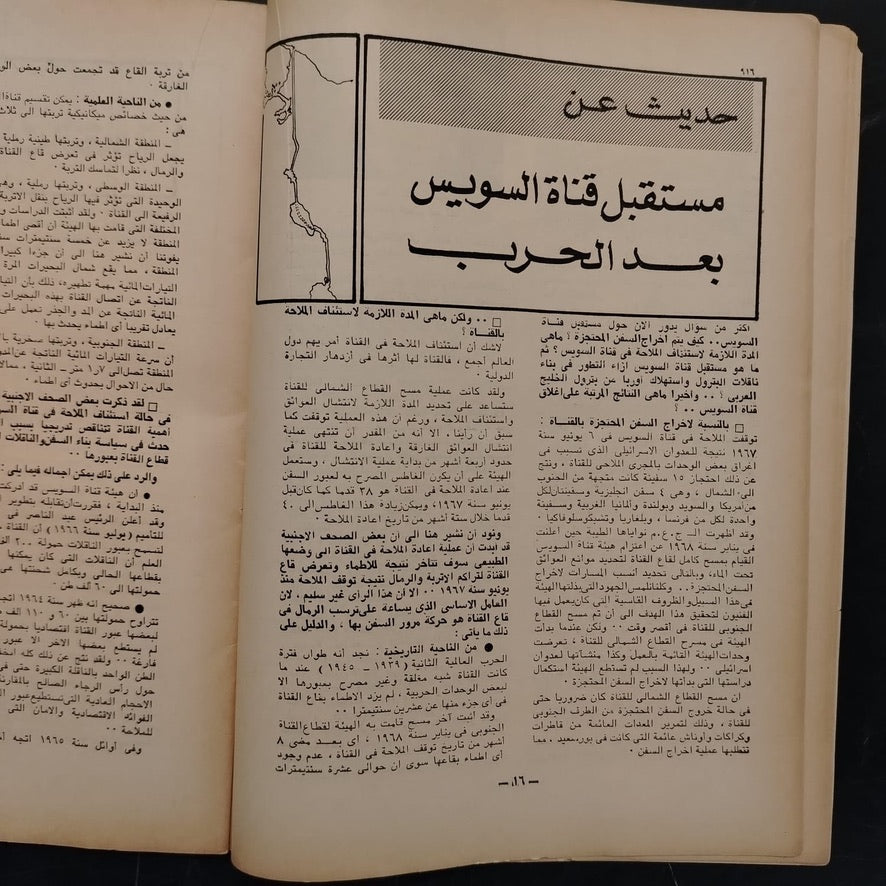 ٩١٦
حديث عن
مستقبل قناة السويس
بعد الحرب
اكثر من سؤال يدور الان حول مستقبل قناة
السويس.. كيف يتم اخراج السفن المحتجزة ؟ ماهى
المدة اللازمة لاستئناف الملاحة فى قناة السويس ؟ ثم
ما هو مستقبل قناة السويس ازاء التطور فى بناء
ناقلات البترول واستهلاك أوربا من بترول الخليج
العربى ؟ .. واخيرا ماهى النتائج المرتبة على اغلاق
قناة السويس .. ؟
□ بالنسبة لاخراج السفن المحتجزة بالقناة :
توقفت الملاحة فى قناة السويس فى ٦ يونيو سنة
١٩٦٧ نتيجة للعدوان الاسرائيلى الذى تسبب فى
اغراق بعض الوحدات بالمجرى الملاحى للقناة ، ونتج
عن ذلك احتجاز ١٥ سفينة كانت متجهة من الجنوب
الى الشمال ، وهى ٤ سفن انجليزية وسفينتان لكل
من أمريكا والسويد وبولندة وألمانيا الغربية وسفينة
واحدة لكل من فرنسا ، وبلغاريا وتشيكوسلوفاكيا .
وقد اظهرت الـ ج.ع.م نواياها الطيبة حين أعلنت
فى يناير سنة ١٩٦٨ عن اعتزام هيئة قناة السويس
القيام بمسح كامل لقاع القناة لتحديد موانع العوائق
تحت الماء، وبالتالى تحديد أنسب المسارات لاخراج
السفن المحتجزة .. وكلنا نلمس الجهود التى بذلتها الهيئة
فى هذا السبيل والظروف القاسية التى كان يعمل فيها
الفنيون لتحقيق هذا الهدف الى أن تم مسح القطاع
الجنوبى للقناة فى أقصر وقت .. ولكن عندما بدأت
الهيئة فى مسرح القطاع الشمالى للقناة ، تعرضت
وحدات الهيئة القائمة بالعمل وكذا منشآتها لعدوان
اسرائيلى .. ولهذا السبب لم تستطع الهيئة استكمال
دراستها التى بدأتها لاخراج السفن المحتجزة .
ان مسح القطاع الشمالى للقناة كان ضروريا حتى
فى حالة خروج السفن المحتجزة من الطرف الجنوبى
للقناة ، وذلك لتمرير المعدات العائمة من قاطرات
وكراكات وأوناش عائمة التى كانت فى بورسعيد ، مما
تتطلبها عملية اخراج السفن .
□ .. ولكن ماهى المدة اللازمة لاستئناف الملاحة
بالقناة ؟
لاشك أن استئناف الملاحة فى القناة أمر يهم دول
العالم أجمع ، فالقناة لها أثرها فى أزدهار التجارة
الدولية .
ولقد كانت عملية مسح القطاع الشمالى للقناة
ستساعد على تحديد المدة اللازمة لانتشال العوائق
واستئناف الملاحة ، ورغم أن هذه العملية توقفت كما
سبق أن رأينا. الا أنه من المقدر أن تنتهى عملية
انتشال العوائق الغارقة واعادة الملاحة للقناة فى
حدود أربعة أشهر من بداية عملية الانتشال ، وستعمل
الهيئة على أن يكون الغاطس المصرح به لعبور السفن
عند اعادة الملاحة فى القناة هو ٣٨ قدما كما كان قبل
يونيو سنة ١٩٦٧، ويمكن زيادة هذا الغاطس الى ٤٠
قدما خلال ستة أشهر من تاريخ اعادة الملاحة .
ونود أن نشير هنا الى أن بعض الصحف الاجنبية
قد ابدت أن عملية اعادة الملاحة فى القناة الى وضعها
الطبيعى سوف تتأخر نتيجة للاطماء وتعرض قاع
القناة لتراكم الاتربة والرمال نتيجة توقف الملاحة منذ
يونيو سنة ١٩٦٧ .. الا أن هذا الرأى غير سليم ، لان
العامل الاساسى الذى يساعد على ترسب الرمال فى
قاع القناة هو حركة مرور السفن بها ، والدليل على
ذلك ما يأتى :
● من الناحية التاريخية : نجد أنه طوال فترة
الحرب العالمية الثانية ( ١٩٣٩ - ١٩٤٥ ) عند ما
كانت القناة شبه مغلقة وغير مصرح بعبورها الا
لبعض الوحدات الحربية ، لم يزد الاطماء بقاع القناة
فى أى جزء منها عن عشرين سنتيمترا ..
وقد أثبت آخر مسح قامت به الهيئة لقطاع القناة
الجنوبى فى يناير سنة ١٩٦٨ ، أى بعد مضى ٨
أشهر من تاريخ توقف الملاحة فى القناة ، عدم وجود
أى اطماء بقاعها سوى أن حوالى عشرة سنتيمترات
— ١٦ —
من تربة القاع قد تجمعت حول بعض
الغارقة .
● من الناحية العلمية : يمكن تقسيم قناة
من حيث خصائص ميكانيكية تربتها الى ثلاث
هى :
ـ المنطقة الشمالية ، وتربتها طينية رملية
يجعل الرياح تؤثر فى تعرض قاع القناة
والرمال ، نظرا لتماسك التربة .
ـ المنطقة الوسطى ، وتربتها رملية ، وهى
الوحيدة التى تؤثر فيها الرياح بنقل الاتربة
الرفيعة الى القناة . ولقد أثبتت الدراسات
المختلفة التى قامت بها الهيئة أن أقصى اطماء
المنطقة لا يزيد عن خمسة سنتيمترات
يفوتنا أن نشير هنا الى أن جزءا كبيرا
المنطقة ، مما يقع شمال البحيرات المرة
التيارات المائية مهمة تطهيره، ذلك بأن
الناتجة عن اتصال القناة بهذه البحيرات
المائية الناتجة عن المد والجذر تعمل على
يعادل تقريبا أى اطماء يحدث بها .
ـ المنطقة الجنوبية ، وتربتها صخرية
أن سرعة التيارات المائية الناتجة عن المد
المنطقة تصل الى ١٫٧ متر ـ الثانية ،
حال من الاحوال يحدوث أى اطماء .
□ لقد ذكرت بعض الصحف الاجنبية
فى حالة استئناف الملاحة فى قناة
أهمية القناة تتناقص تدريجيا بسبب
حدث فى سياسة بناء السفن والناقلات
قطاع القناة بعبورها ..
والرد على ذلك يمكن اجماله فيما يلى :
● أن هيئة قناة السويس قد أدركت
منذ البداية ، فقررت أن تقابله بتطوير
وقد أعلن الرئيس عبد الناصر فى
للتأميم ( يوليو سنة ١٩٦٦ ) أن القناة
لتسمح بعبور الناقلات حمولة ٢٠٠
العلم أن الناقلات التى كان يمكنها
بقطاعها الحالى وبكامل شحنتها هى
حمولتها الى ٦٠ ألف طن .
● صحيح انه ظهر سنة ١٩٦٤
تتراوح حمولتها بين ٦٠ و ١١٠ ألف
لبعضها عبور القناة اقتصاديا بحمولة
لم يستطع بعضها الاخر الا عبور
فارغة .. ولقد نتج عن ذلك كله
الطن الواحد بالناقلة الكبيرة حتى فى
حول رأس الرجاء الصالح بالمقارنة
الاحجام العادية التى تستطيع عبور
الفوائد الاقتصادية والامان التى
للملاحة ..
وفى أوائل سنة ١٩٦٥ اتجه